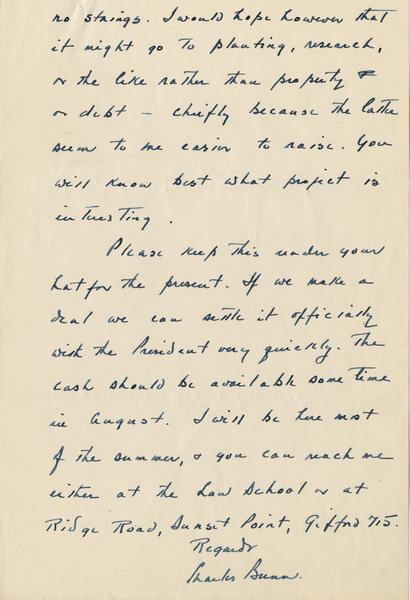 no strings. I would hope however that
it might go to planting, research,
or the like rather than property
or debt – chiefly because the latter
seem to me easier to raise. You
will know best what project is
interesting.
Please keep this under your
hat for the present. If we make a
deal we can settle it officially
with the President very quickly. The
cash should be available some time
in August. I will be here most
of the summer, & you can reach me
either at the Law School or at
Ridge Road, Sunset Point, Gifford 715.
Regards
Charles Bunn.